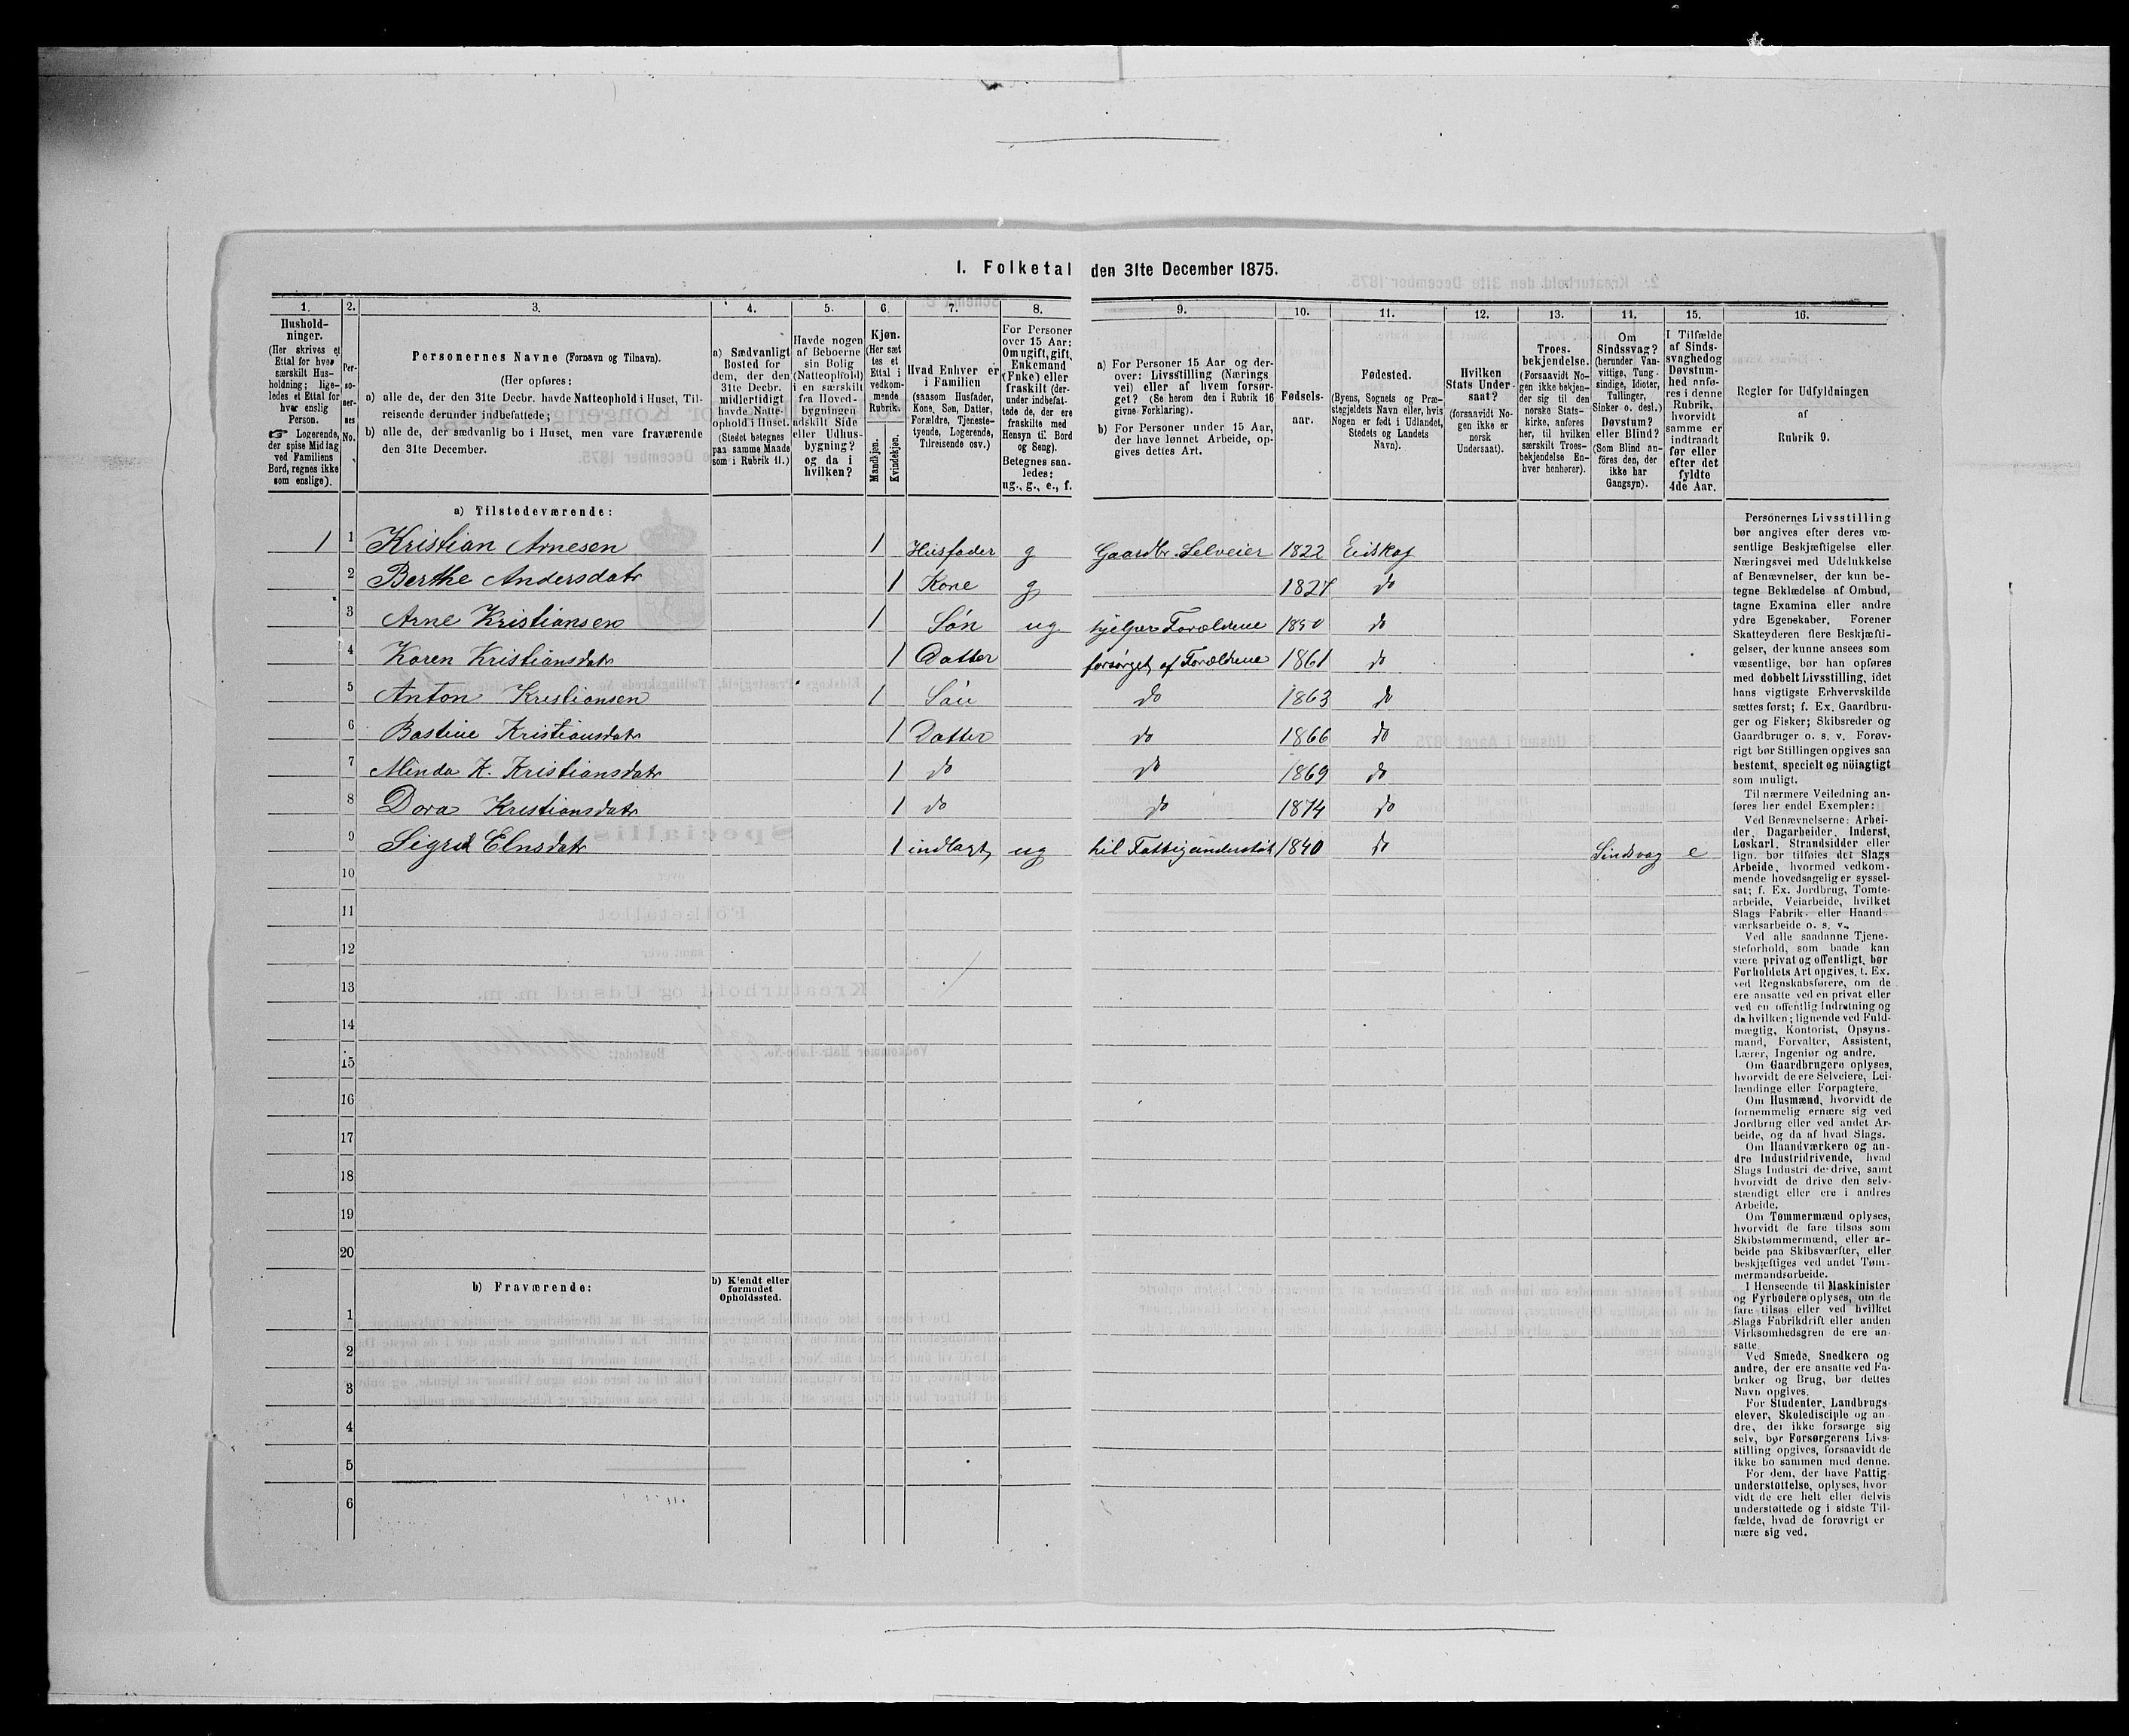 I. Folketal den 31te December 1875.
1. 2. 3. 4. 5. 6. 7. 8. 9. 10. 11. 12. 13. 14. 15. 16.
Hushold-
ninger.
(Her skrives et
Ettal for hver
særskilt Hus-
holdning; lige-
ledes et Ettal for
hver enslig
Person.
☞ Logerende,
der spise Middag
ved Familiens
Bord, regnes ikke
som enslige).
Per-
so-
ner-
nes
No.
Personernes Navne (Fornavn og Tilnavn).
(Her opføres:
a) alle de, der den 31te Decbr. havde Natteophold i Huset, Til-
reisende derunder indbefattede;
b) alle de, der sædvanlig bo i Huset, men vare fraværende
den 31te December.
a) Sædvanligt
Bosted for
dem, der den
31te Decbr.
midlertidigt
havde Natte-
ophold i Huset.
(Stedet betegnes
paa samme Maade
som i Rubrik 11.)
Havde nogen
af Beboerne
sin Bolig
(Natteophold)
i en særskilt
fra Hoved-
bygningen
adskilt Side
eller Udhus-
bygning?
og da i
hvilken?
Kjøn.
(Her sæt
tes et
Ettal i
vedkom-
mende
Rubrik.
Mandkjøn.
Kvindekjøn.
Hvad Enhver er
i Familien
(saasom Husfader,
Kone, Søn, Datter,
Forældre, Tjeneste-
tyende, Logerende,
Tilreisende osv.)
For Personer
over 15 Aar:
Om ugift, gift,
Enkemand
(Enke) eller
fraskilt (der-
under indbefat-
tede de, der ere
fraskilte med
Hensyn til Bord
og Seng).
Betegnes saa-
ledes:
ug., g., e., f.
a) For Personer 15 Aar og der-
over: Livsstilling (Nærings
vei) eller af hvem forsør-
get? (Se herom den i Rubrik 16
givne Forklaring).
b) For Personer under 15 Aar,
der have lønnet Arbeide, op-
gives dettes Art.
Fødsels-
aar.
Fødested.
(Byens, Sognets og Præ-
stegjeldets Navn eller, hvis
Nogen er født i Udlandet,
Stedets og Landets
Navn).
Hvilken
Stats Under-
saat?
(forsaavidt No-
gen ikke er
norsk
Undersaat).
Troes-
bekjendelse.
(Forsaavidt No-
gen ikke bekjen-
der sig til den
norske Stats-
kirke, anføres
her, til hvilken
særskilt Troes-
bekjendelse En-
hver henhører).
Om
Sindssvag?
(herunder Van-
vittige, Tung-
sindige, Idioter,
Tullinger,
Sinker o. desl.)
Døvstum?
eller Blind?
(Som Blind an-
føres den, der
ikke har
Gangsyn).
I Tilfælde
af Sinds-
svaghedog
Døvstum-
hed anfø-
res i denne
Rubrik,
hvorvidt
samme er
indtraadt
før eller
efter det
fyldte
4de Aar.
Regler for Udfyldningen
af
Rubrik 9.
a) Tilstedeværende:
1 1 Kristian Arnesen 1 Husfader g Gaardbr. Selveier 1822 Eidskog
2 Berthe Andersdatr 1 Kone g 1827 do
3 Arne Kristiansen 1 Søn ug hjelper Forældrene 1850 do
4 Karen Kristiansdatr 1 Datter forsørget af Forældrene 1861 do
5 Anton Kristiansen 1 Søn do 1863 do
6 Bastine Kristiansdatr 1 Datter do 1866 do
7 Minda K. Kristiansdatr 1 do do 1869 do
8 Dora Kristiansdatr 1 do do 1874 do
9 Sigrid Elnsdatr 1 indlagt ug hel Fattigunderstøt 1840 do Sindsvag e
10
11
12
13
14
15
16
17
18
19
20
b) Fraværende:
b) Kjendt eller
formodet
Opholdssted.
1
2
3
4
5
6
Personernes Livsstilling
bør angives efter deres væ-
sentlige Beskjæftigelse eller
Næringsvei med Udelukkelse
af Benævnelser, der kun be-
tegne Beklædelse af Ombud,
tagne Examina eller andre
ydre Egenskaber. Forener
Skatteyderen flere Beskjæfti-
gelser, der kunne ansees som
væsentlige, bør han opføres
med dobbelt Livsstilling, idet
hans vigtigste Erhvervskilde
sættes først; f. Ex. Gaardbru-
ger og Fisker; Skibsreder og
Gaardbruger o. s. v. Forøv-
rigt bør Stillingen opgives saa
bestemt, specielt og nöiagtigt
som muligt.
Til nærmere Veiledning an-
føres her endel Exempler:
Ved Benævnelserne: Arbei-
der, Dagarbeider, Inderst,
Løskarl, Strandsidder eller
lign. bør tilføies det Slags
Arbeide, hvormed vedkom-
mende hovedsagelig er syssel-
sat; f. Ex. Jordbrug, Tomte-
arbeide, Veiarbeide, hvilket
Slags Fabrik- eller Haand-
værksarbeide o. s. v.
Ved alle saadanne Tjene-
steforhold, som baade kan
være privat og offentligt, bør
Forholdets Art opgives, t. Ex.
ved Regnskabsførere, om de
ere ansatte ved en privat eller
ved en offentlig Indretning og
da hvilken; lignende ved Fuld-
mægtig, Kontorist, Opsyns-
mand, Forvalter, Assistent,
Lærer, Ingeniør og andre.
Om Gaardbrugere oplyses,
hvorvidt de ere Selveiere, Lei-
lændinge eller Forpagtere.
Om Husmænd, hvorvidt de
fornemmelig ernære sig ved
Jordbrug eller ved andet Ar-
beide, og da af hvad Slags.
Om Haandværkere og an-
dre Industridrivende, hvad
Slags Industri de drive, samt
hvorvidt de drive den selv-
stændigt eller ere i andres
Arbeide.
Om Tømmermænd oplyses,
hvorvidt de fare tilsøs som
Skibstømmermænd, eller ar-
beide paa Skibsværfter, eller
beskjæftiges ved andet Tøm-
mermandsarbeide.
I Henseende til Maskinister
og Fyrbødere oplyses, om de
fare tilsøs eller ved hvilket
Slags Fabrikdrift eller anden
Virksomhedsgren de ere an-
satte.
Ved Smede, Snedkere og
andre, der ere ansatte ved Fa-
briker og Brug, bør dettes
Navn opgives.
For Studenter, Landbrugs-
elever, Skoledisciple og an-
dre, der ikke forsørge sig
selv, bør Forsørgerens Livs-
stilling opgives, forsaavidt de
ikke bo sammen med denne.
For dem, der have Fattig-
understøttelse, oplyses, hvor
vidt de ere helt eller delvis
understøttede og i sidste Til-
fælde, hvad de forøvrigt er
nære sig ved.